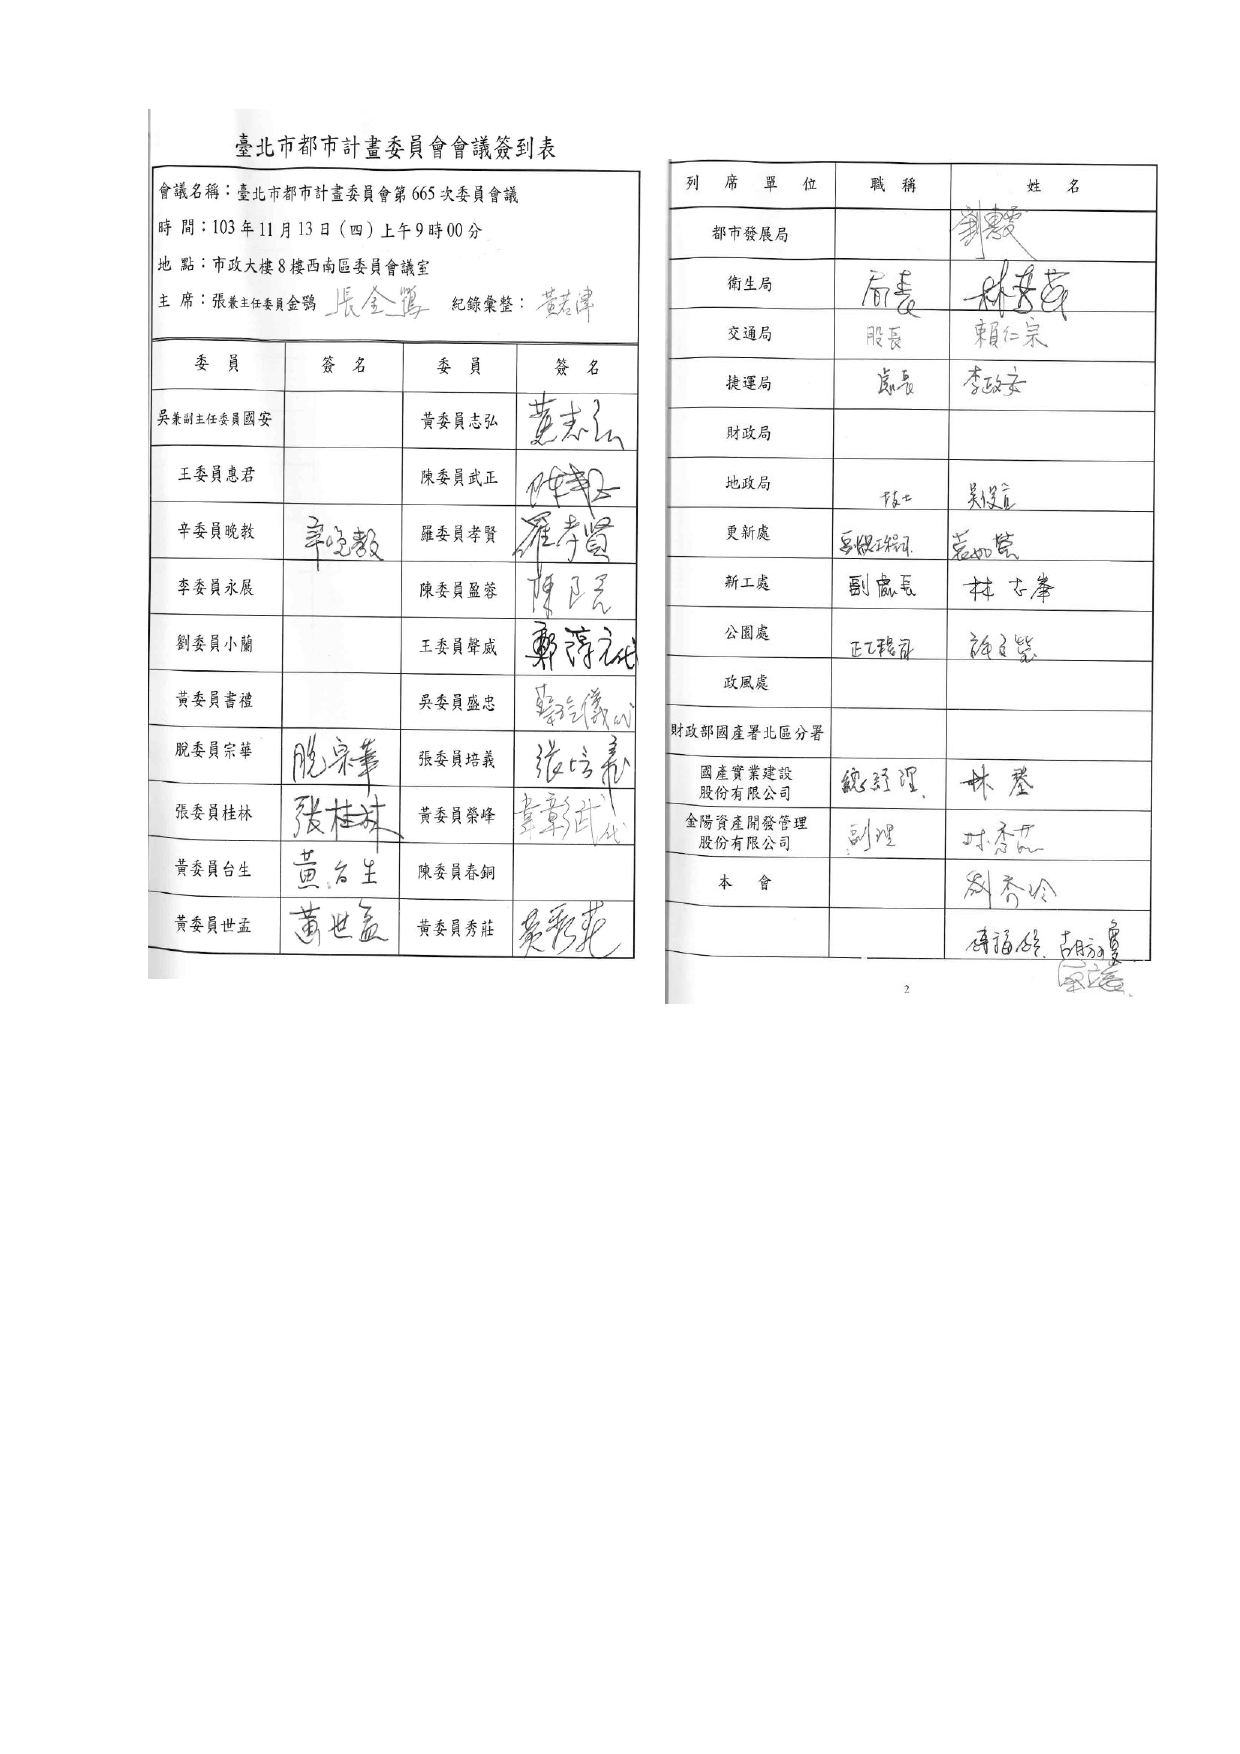 臺北市都市計畫委員會會議簽到表
會議名稱：臺北市都市計畫委員會第665次委員會議
時 間：103年11月13日（四）上午9時00分
地 點：市政大樓8樓西南區委員會議室
主 席：張兼主任委員金鶚 張金鶚 紀錄彙整：黃若津
委 員 簽 名 委 員 簽 名
吳兼副主任委員國安 黃委員志弘 黃志弘
王委員惠君 陳委員武正 陳武正
辛委員晚教 辛晚教 羅委員孝賢 羅孝賢
李委員永展 陳委員盈蓉 陳
劉委員小蘭 王委員聲威 鄭淳元代
黃委員書禮 吳委員盛忠 儀代
脫委員宗華 脫宗華 張委員培義 張培義
張委員桂林 張桂林 黃委員榮峰 韋彰武代
黃委員台生 黃台生 陳委員春銅
黃委員世孟 黃世孟 黃委員秀莊 黃秀莊
列 席 單 位 職 稱 姓 名
都市發展局 劉惠雯
衛生局 局長 林奇宏
交通局 股長 賴仁宗
捷運局 處長 李政安
財政局
地政局 技士
更新處 副總工程司
新工處 副處長 林志峯
公園處 正工程司 許立
政風處
財政部國產署北區分署
國產實業建設
股份有限公司 總經理 林
金陽資產開發管理
股份有限公司 副理 林
本 會 劉秀玲
胡方瓊
2